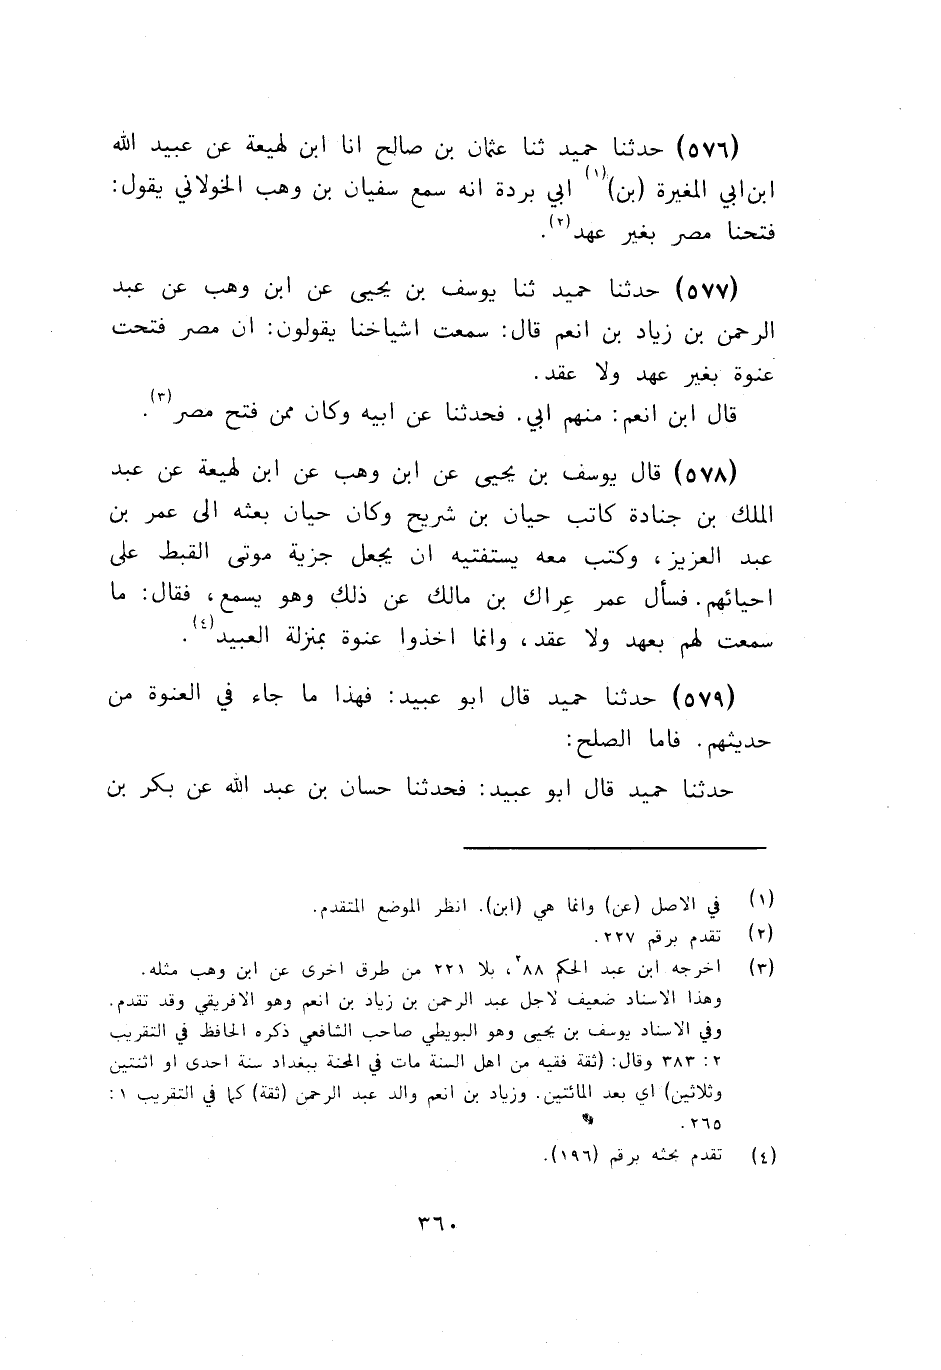 (٥٧٦) حدثنا حميد ثنا عثمان بن صالح انا ابن لهيعة عن عبيد الله
ابن ابي المغيرة (بن)(١) ابي بردة انه سمع سفيان بن وهب الخولاني يقول:
فتحنا مصر بغير عهد(٢).
(٥٧٧) حدثنا حميد ثنا يوسف بن يحيى عن ابن وهب عن عبد
الرحمن بن زياد بن انعم قال: سمعت اشياخنا يقولون: ان مصر فتحت
عنوة بغير عهد ولا عقد.
قال ابن انعم: منهم ابي. فحدثنا عن ابيه وكان ممن فتح مصر(٣).
(٥٧٨) قال يوسف بن يحيى عن ابن وهب عن ابن لهيعة عن عبد
الملك بن جنادة كاتب حيان بن شريح وكان حيان بعثه الى عمر بن
عبد العزيز، وكتب معه يستفتيه ان يجعل جزية موتى القبط على
احيائهم. فسأل عمر عِراك بن مالك عن ذلك وهو يسمع، فقال: ما
سمعت لهم بعهد ولا عقد، وانما اخذوا عنوة بمنزلة العبيد(٤).
(٥٧٩) حدثنا حميد قال ابو عبيد: فهذا ما جاء في العنوة من
حديثهم. فاما الصلح:
حدثنا حميد قال ابو عبيد: فحدثنا حسان بن عبد الله عن بكر بن
(١) في الاصل (عن) وانما هي (ابن). انظر الموضع المتقدم.
(٢) تقدم برقم ٢٢٧.
(٣) اخرجه ابن عبد الحكم ٨٨، بلا ٢٢١ من طرق اخرى عن ابن وهب مثله.
وهذا الاسناد ضعيف لاجل عبد الرحمن بن زياد بن انعم وهو الافريقي وقد تقدم.
وفي الاسناد يوسف بن يحيى وهو البويطي صاحب الشافعي ذكره الحافظ في التقريب
٢: ٣٨٣ وقال: (ثقة فقيه من اهل السنة مات في المحنة ببغداد سنة احدى او اثنتين
وثلاثين) اي بعد المائتين. وزياد بن انعم والد عبد الرحمن (ثقة) كما في التقريب ١:
٢٦٥.
(٤) تقدم بحثه برقم (١٩٦).
٣٦٠